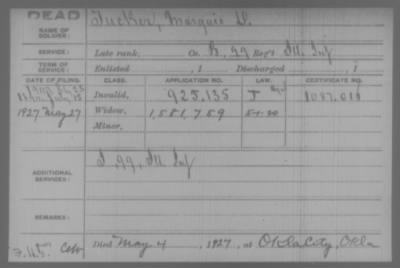 DEAD
NAME OF SOLDIER: Tucker, Marquis D.
SERVICE: Late rank, Co. B, 99 Reg't Ill. Inf
TERM OF SERVICE: Enlisted , 1 Discharged , 1
DATE OF FILING. CLASS. APPLICATION NO. LAW. CERTIFICATE NO.
Invalid, 925.135
1927 May 27 Widow, 1,581,759 5-1-20
Minor,
ADDITIONAL SERVICES: I, 99, Ill Inf
REMARKS:
Died May 4, 1927, at Okla City, Okla